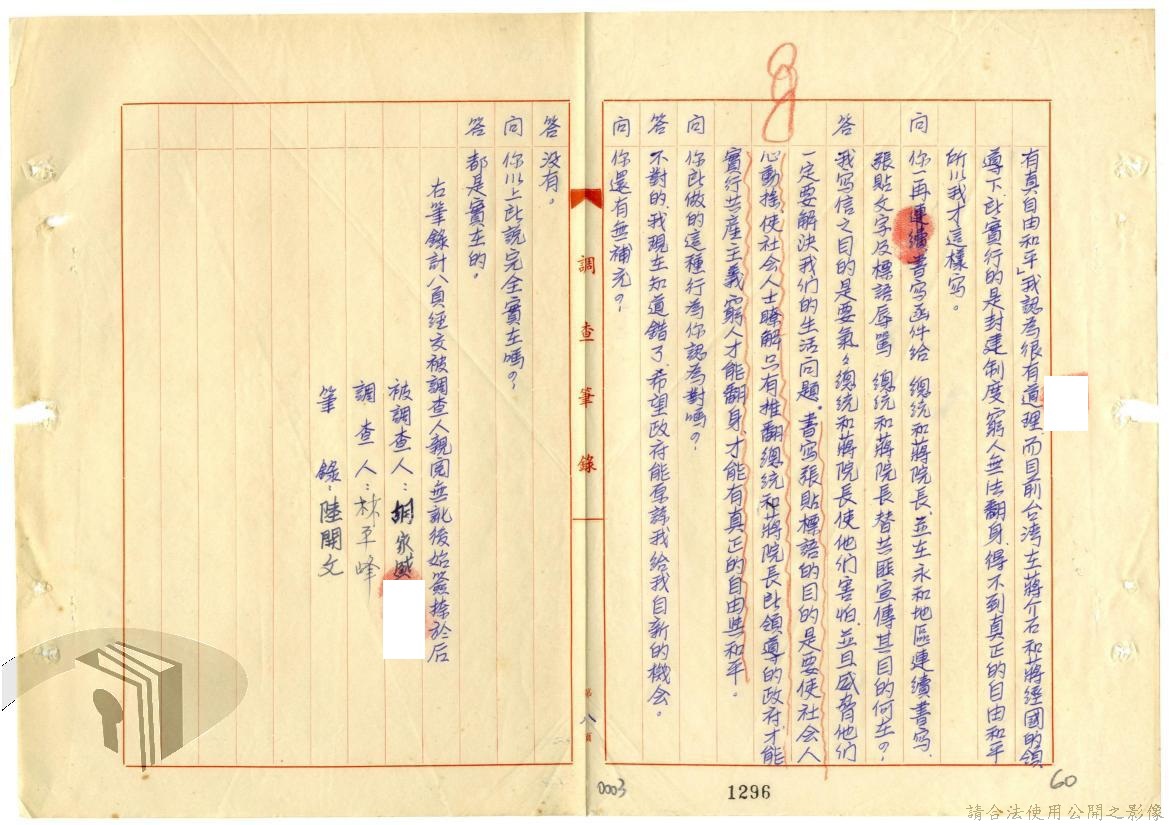 有真自由和平」我認為很有道理而目前台湾在蔣介石和蔣經國的領
導下、所實行的是封建制度窮人無法翻身、得不到真正的自由和平
所以我才這樣写。
問 你一再連續書寫函件給 總統和蔣院長、並在永和地區連續書寫、
張貼文字及標語辱罵 總統和蔣院長替共匪宣傳其目的何在？
答 我写信之目的是要氣々總統和蔣院長使他们害怕、並且威脅他们
一定要解決我们的生活问題。書写張貼標語的目的是要使社会人
心動搖使社会人士瞭解只有推翻總統和蔣院長所領導的政府才能
實行共產主義窮人才能翻身、才能有真正的自由與和平。
问 你所做的這種行為你認為對嗎？
答 不對的、我現在知道錯了、希望政府能原諒我給我自新的機会。
问 你還有無補充？
答 没有。
问 你以上所說完全實在嗎？
答 都是實在的。
右筆錄計八頁經交被調查人親閱無訛後始簽捺於后
被調查人：胡家威
調查人：林平峰
筆錄：陸開文
調查筆錄
第八頁
8
60
0003
1296
請合法使用公開之影像